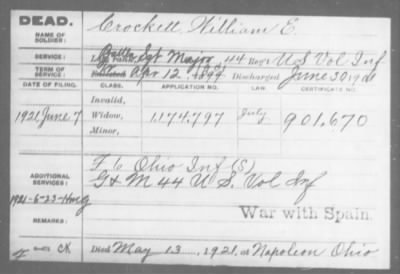 DEAD.
NAME OF SOLDIER:
Crockett, William E.
SERVICE:
Batln Sgt Major, 44 Reg't U S Vol Inf
TERM OF SERVICE:
Apr 12, 1899, Discharged June 30 1901
DATE OF FILING.
CLASS.
APPLICATION NO.
LAW.
CERTIFICATE NO.
Invalid,
1921 June 7
Widow,
1,174,797
July
901,670
Minor,
ADDITIONAL SERVICES:
F 6 Ohio Inf (S)
G & M 44 U S. Vol Inf
1921-6-23-Hmg
War with Spain.
REMARKS:
CK
Died May 13, 1921, at Napoleon Ohio